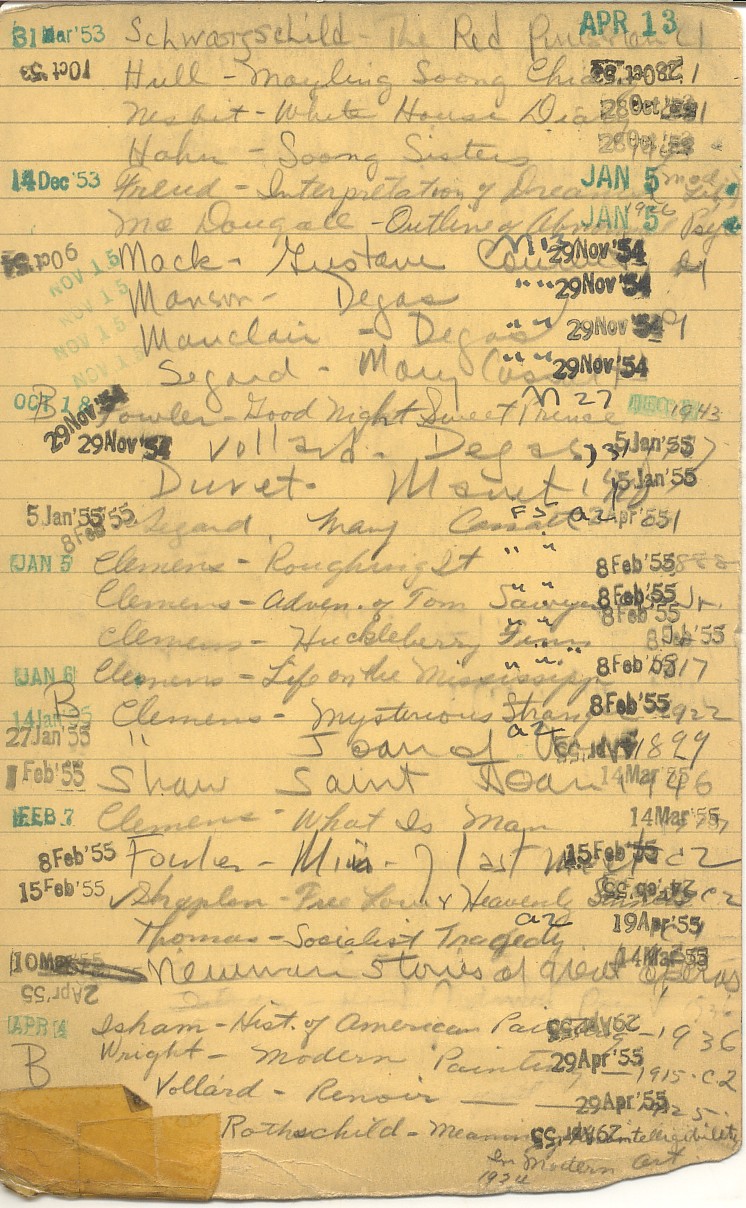 31 Mar '53 Schwarzschild - The Red Prussian APR 13
10 Oct '53 Hull - Mayling Soong Chiang 28 Oct '53 1
Nesbit - White House Diary 28 Oct
Hahn - Soong Sisters 28 Oct
14 Dec '53 Freud - Interpretation of Dreams JAN 5 Mod. Lib.
Mc Dougall - Outline of Abnormal Psy JAN 5
Mack - Gustave Courbet 29 Nov '54
NOV 15 Manson - Degas " " 29 Nov '54
NOV 15 Mauclair - Degas " " 29 Nov '54
NOV 15 Segard - Mary Cassatt " " 29 Nov '54
OCT 18 B Fowler - Good Night Sweet Prince 1943
29 Nov '54 29 Nov '54 Vollard - Degas 5 Jan '55
Duret - Manet 5 Jan '55
5 Jan '55 8 Feb '55 Segard, Mary Cassatt 2 Apr '55
JAN 5 Clemens - Roughing It " " 8 Feb '55
Clemens - Adven. of Tom Sawyer " " 8 Feb '55
8 Feb '55
Clemens - Huckleberry Finn " " 8 Feb '55
JAN 6 Clemens - Life on the Mississippi " " 8 Feb '55
B 14 Jan '55 Clemens - Mysterious Strang 8 Feb '55 1922
27 Jan '55 " Joan of 1899
1 Feb '55 Shaw Saint Joan 14 Mar '55 1946
FEB 7 Clemens - What Is Man 14 Mar '55
8 Feb '55 Fowler - 15 Feb '55 C2
15 Feb '55 Shaplen - Free Love & Heavenly Sinners 24 Feb '55 C2
Thomas - Socialist Tragedy 19 Apr '55
10 Mar '55 Newman Stories of great operas 14 Mar '55
2 Apr '55
APR 4 Isham - Hist. of American Painting 29 Apr '55 - 1936
B Wright - Modern Painting 29 Apr '55 - 1915 - C2
Vollard - Renoir — 29 Apr '55 1925
Rothschild - Meaning Intelligibility 29 Apr '55
In Modern Art
1934